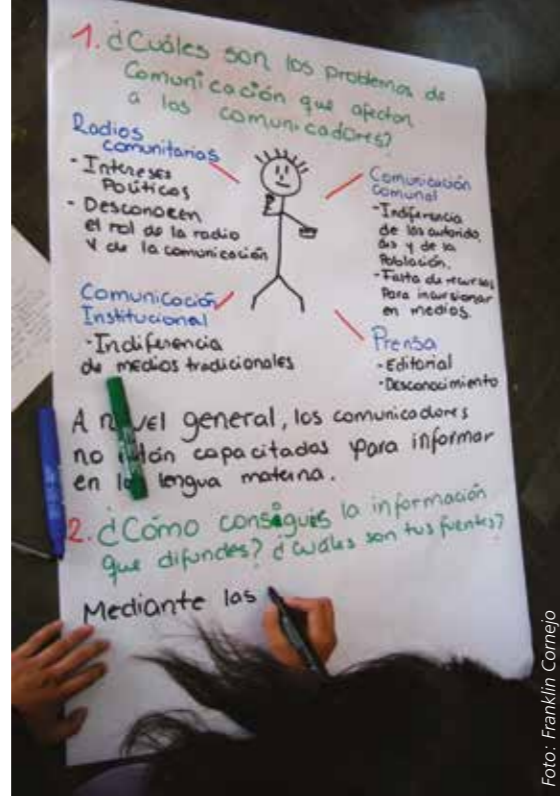 1. ¿Cuáles son los problemas de
Comunicación que afectan
a los comunicadores?
Radios
comunitarias
- Intereses
Políticos
- Desconocen
el rol de la radio
y de la comunicación
Comunicación
Comunal
- Indiferencia
de las autorida
des y de la
Población.
- Falta de recursos
Para incursionar
en medios.
Comunicación
Institucional
- Indiferencia
de medios tradicionales
Prensa
- Editorial
- Desconocimiento
A nivel general, los comunicadores
no están capacitados para informar
en la lengua materna.
2. ¿Cómo consigues la información
que difundes? ¿Cuáles son tus fuentes?
Mediante las
Foto: Franklin Cornejo